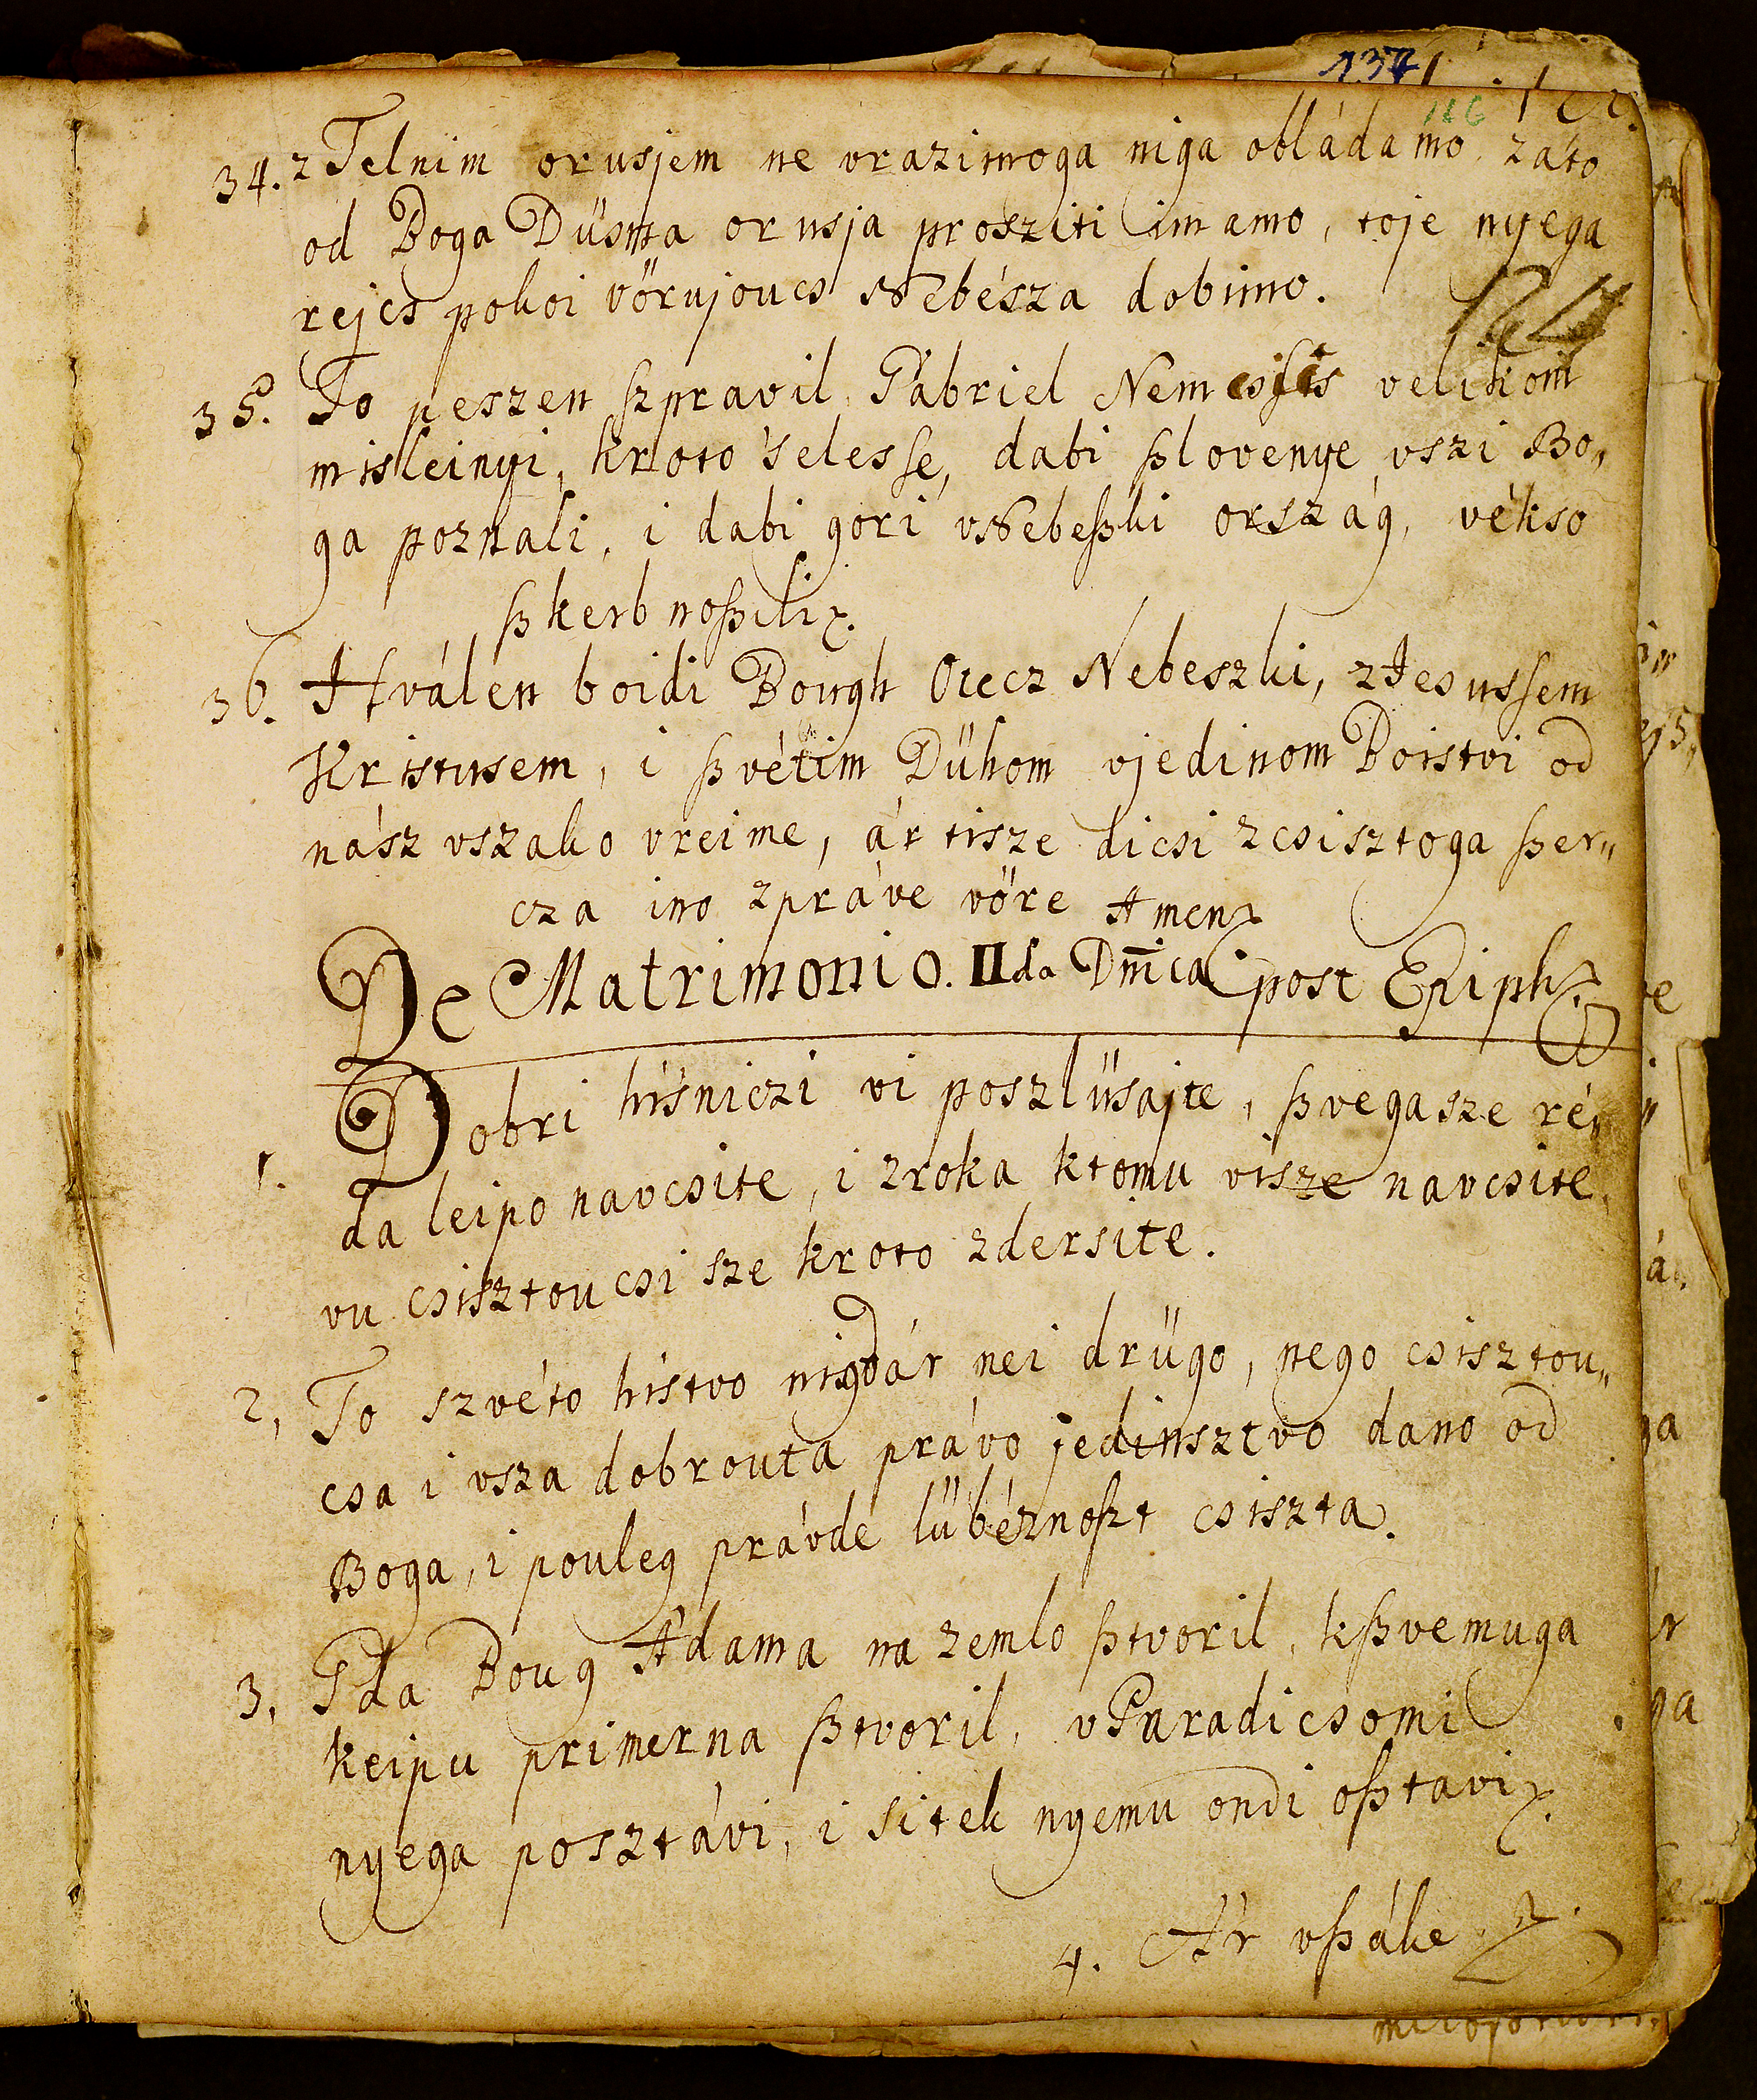 137
116
34. z Telnim orusjem ne vrazimoga niga obládamo, záto
od Boga Düsna orusja prosziti imamo, toje nyega
rejcs pokoi vörujoucs vNebésza dobimo.
35. To peszen szpravil Gábriel Nemcsics velikom
misleinyi, kroto 'selesse, dabi ßlovenye vszi Bo„
ga poznali, i dabi gori vNebeßkiország, vékso
ßkerb noßili.
36. Hválen boidi Bough Otecz Nebeszki, zJesussem
Kristusem, i ßvétim Dühom vjedinom Boistvi od
nász vszako vreime, ár tisze dicsi zcsisztoga ßer„
cza ino zpráve vöre Amen
De Matrimonio. IIda Dm̄ica post Epiph
1. Dobri hisniczi vi poszlüsajte, ßvegasze ré„
da leipo navcsite, i zroka ktomu visze navcsite,
vu csisztoucsi sze kroto zdersite.
2, To szvéto histvo nigdár nei drügo, nego csisztou„
csa i vsza dobrouta právo jedinsztvo dano od
Boga, i pouleg právde lübéznoßt csiszta.
3, Gda Boug Ádama na zemlo ßtvoril, kßvemuga
keipu primerna ßtvoril, vParadicsomi
nyega posztávi, i sitek nyemu ondi oßtavi
4. Ár vßáke